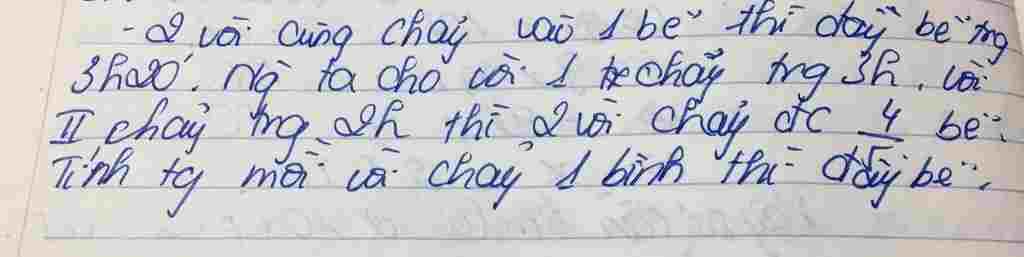 - 2 vòi cùng chảy vào 1 bể thì đầy bể trg
3h20'. Ng ta cho vòi 1 chảy trg 3h, vòi
II chảy trg 2h thì 2 vòi chảy đc 4/5 bể.
Tính tg mỗi vòi chảy 1 bình thì đầy bể.